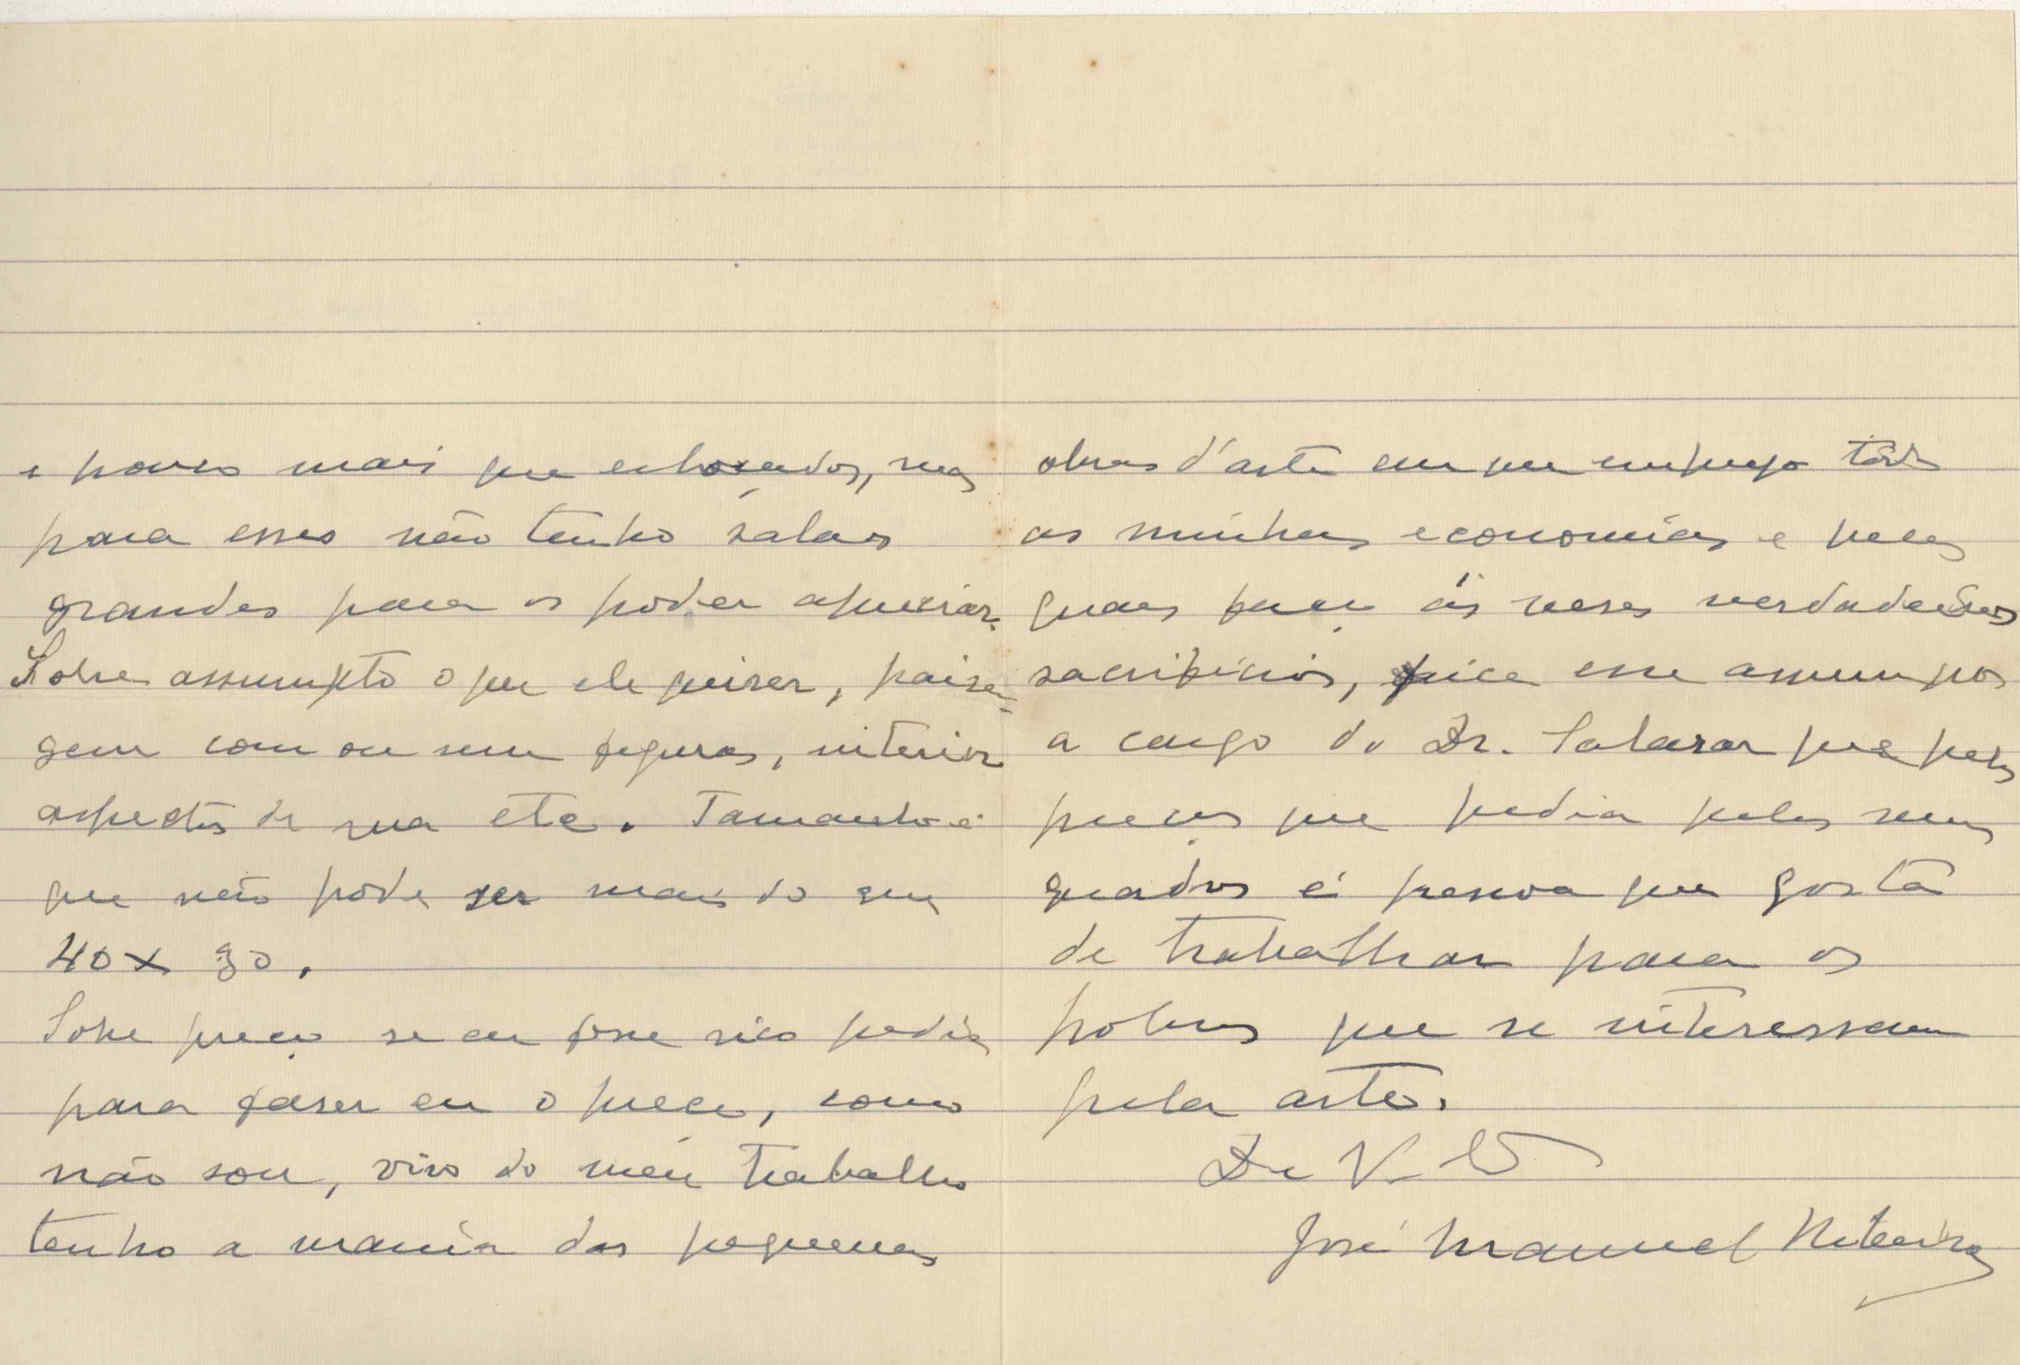 e pouco mais que esboçados, mas
para esses não tenho salas
grandes para os poder apreciar.
Sobre assumpto o que ele quiser, paisa-
gem com ou sem figuras, interior
aspectos de rua etc. Tamanho é
que não pode ser mais do que
40 x 30.
Sobre preço se eu fosse rico pedia
para faser eu o preço, como
não sou, vivo do meu trabalho
tenho a mania das pequenas
obras d'arte em que emprego todas
as minhas economias e pelas
quaes faço ás veses verdadeiros
sacrificios, fica esse assumpto
a cargo do Dr. Salasar que pelos
preços que pedia pelos seus
quadros é pessoa que gosta
de trabalhar para os
pobres que se interessam
pela arte.
De V.
José Manuel